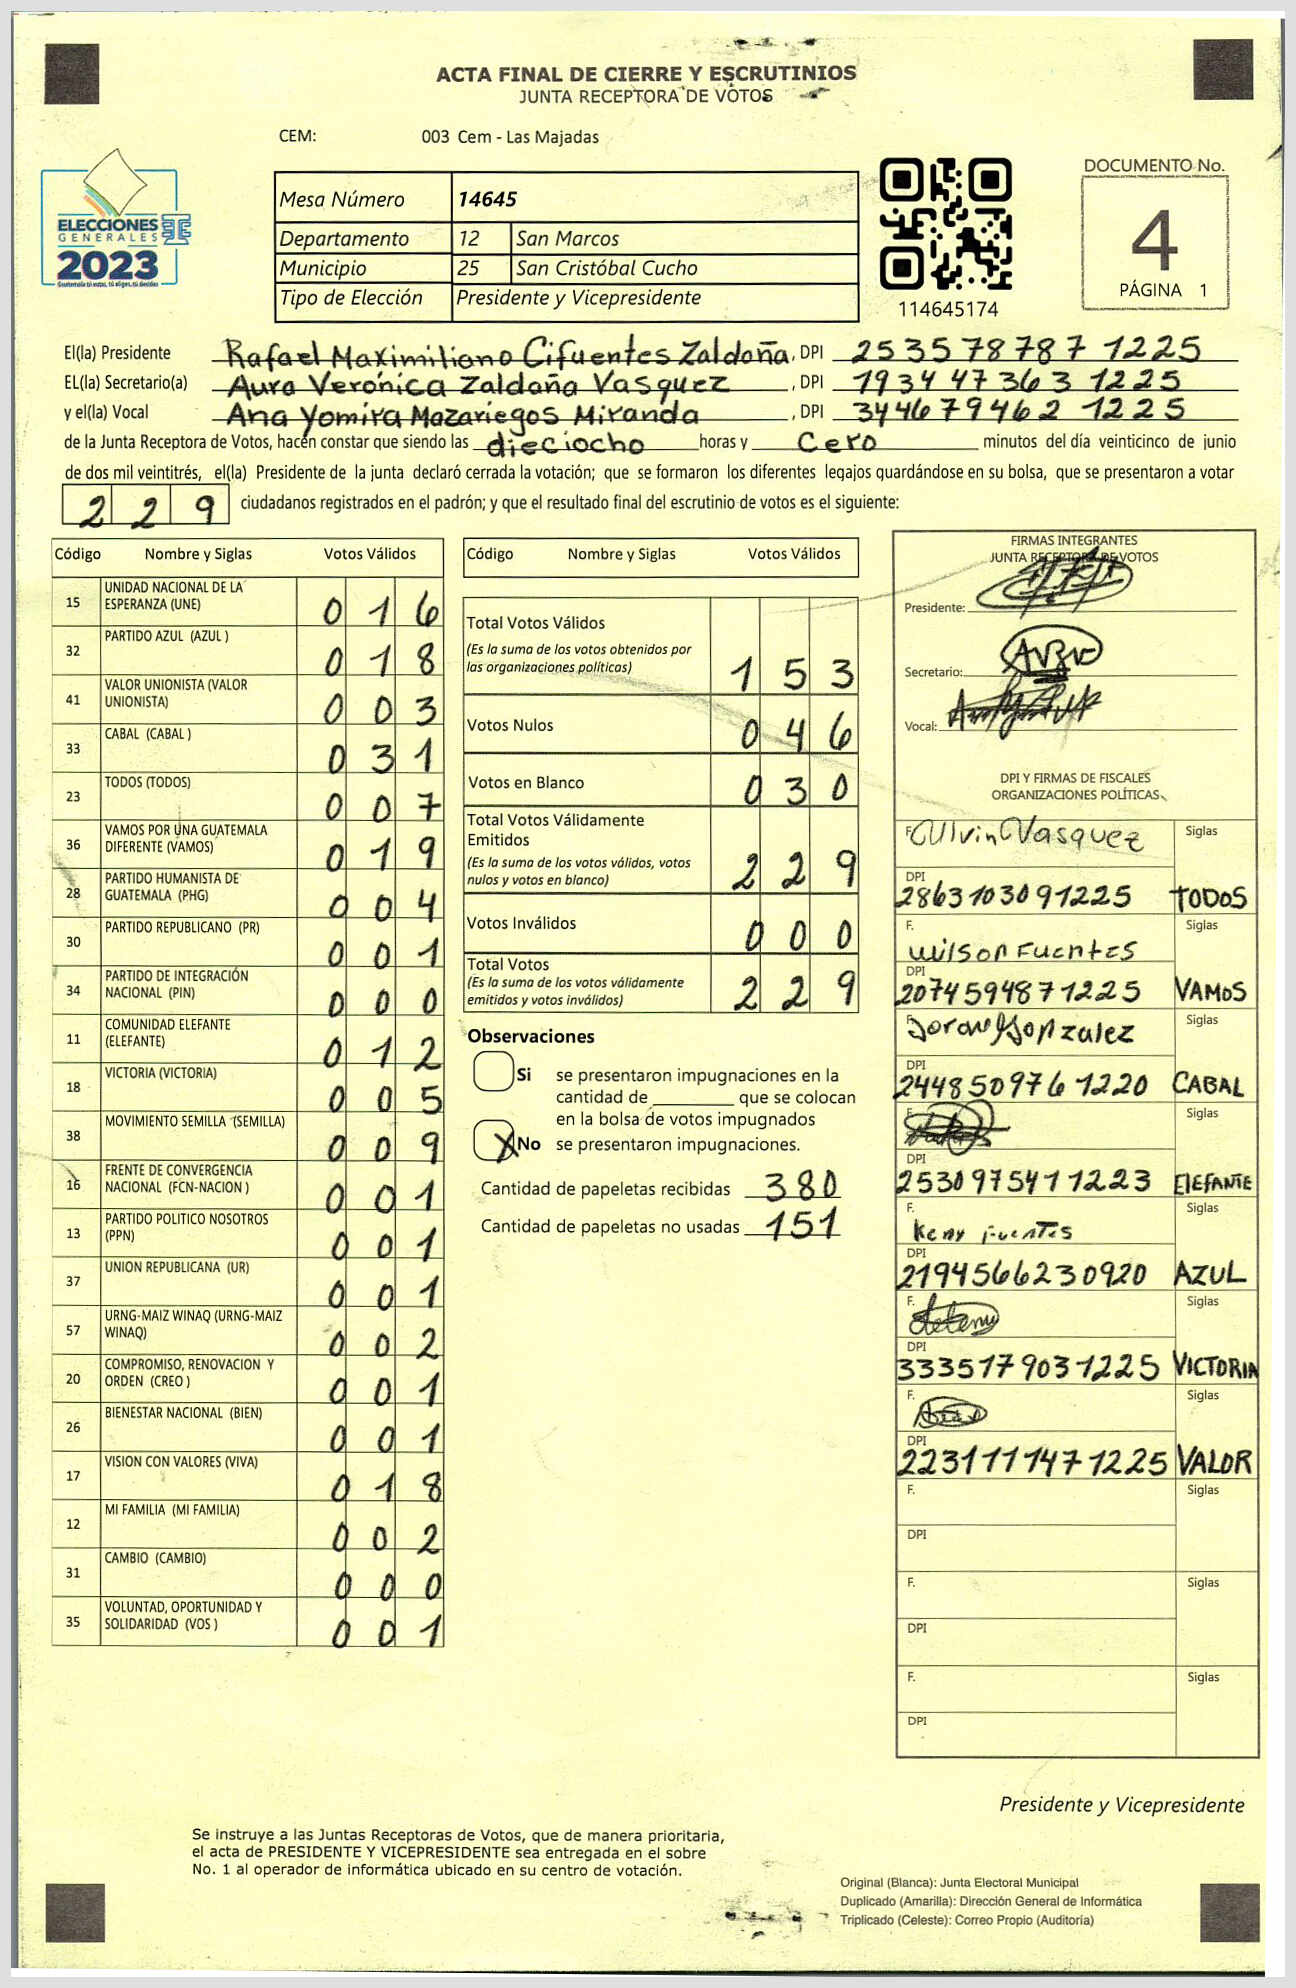 ACTA FINAL DE CIERRE Y ESCRUTINIOS
JUNTA RECEPTORA DE VOTOS
CEM: 003 Cem - Las Majadas
ELECCIONES
GENERALES
2023
Guatemala tú votas, tú eliges, tú decides
Mesa Número 14645
Departamento 12 San Marcos
Municipio 25 San Cristóbal Cucho
Tipo de Elección Presidente y Vicepresidente
114645174
DOCUMENTO No.
4
PÁGINA 1
El(la) Presidente Rafael Maximiliano Cifuentes Zaldaña, DPI 253578787 1225
EL(la) Secretario(a) Aura Verónica Zaldaña Vasquez, DPI 1934 47363 1225
y el(la) Vocal Ana Yomira Mazariegos Miranda, DPI 344679462 1225
de la Junta Receptora de Votos, hacen constar que siendo las dieciocho horas y cero minutos del día veinticinco de junio
de dos mil veintitrés, el(la) Presidente de la junta declaró cerrada la votación; que se formaron los diferentes legajos quardándose en su bolsa, que se presentaron a votar
229 ciudadanos registrados en el padrón; y que el resultado final del escrutinio de votos es el siguiente:
Código Nombre y Siglas Votos Válidos
15 UNIDAD NACIONAL DE LA ESPERANZA (UNE) 016
32 PARTIDO AZUL (AZUL ) 018
41 VALOR UNIONISTA (VALOR UNIONISTA) 003
33 CABAL (CABAL ) 031
23 TODOS (TODOS) 007
36 VAMOS POR UNA GUATEMALA DIFERENTE (VAMOS) 019
28 PARTIDO HUMANISTA DE GUATEMALA (PHG) 004
30 PARTIDO REPUBLICANO (PR) 001
34 PARTIDO DE INTEGRACIÓN NACIONAL (PIN) 000
11 COMUNIDAD ELEFANTE (ELEFANTE) 012
18 VICTORIA (VICTORIA) 005
38 MOVIMIENTO SEMILLA (SEMILLA) 009
16 FRENTE DE CONVERGENCIA NACIONAL (FCN-NACION ) 001
13 PARTIDO POLITICO NOSOTROS (PPN) 001
37 UNION REPUBLICANA (UR) 001
57 URNG-MAIZ WINAQ (URNG-MAIZ WINAQ) 002
20 COMPROMISO, RENOVACION Y ORDEN (CREO ) 001
26 BIENESTAR NACIONAL (BIEN) 001
17 VISION CON VALORES (VIVA) 018
12 MI FAMILIA (MI FAMILIA) 002
31 CAMBIO (CAMBIO) 000
35 VOLUNTAD, OPORTUNIDAD Y SOLIDARIDAD (VOS ) 001
Código Nombre y Siglas Votos Válidos
Total Votos Válidos
(Es la suma de los votos obtenidos por
las organizaciones políticas) 153
Votos Nulos 046
Votos en Blanco 030
Total Votos Válidamente
Emitidos
(Es la suma de los votos válidos, votos
nulos y votos en blanco) 229
Votos Inválidos 000
Total Votos
(Es la suma de los votos válidamente
emitidos y votos inválidos) 229
Observaciones
Si se presentaron impugnaciones en la
cantidad de ________ que se colocan
en la bolsa de votos impugnados
X No se presentaron impugnaciones.
Cantidad de papeletas recibidas 380
Cantidad de papeletas no usadas 151
FIRMAS INTEGRANTES
JUNTA RECEPTORA DE VOTOS
Presidente:
Secretario:
Vocal:
DPI Y FIRMAS DE FISCALES
ORGANIZACIONES POLÍTICAS
F. Alvin Vasquez Siglas
DPI
2863103091225 TODOS
F. Wilson Fuentes Siglas
DPI
2074594871225 VAMOS
F. Gonzalez Siglas
DPI
2448509761220 CABAL
F. Siglas
DPI
2530975411223 ElEFANTE
F. Keny Fuentes Siglas
DPI
2194566230920 AZUL
F. Siglas
DPI
3335179031225 VICTORIA
F. Siglas
DPI
2231111471225 VALOR
F. Siglas
DPI
F. Siglas
DPI
F. Siglas
DPI
Presidente y Vicepresidente
Se instruye a las Juntas Receptoras de Votos, que de manera prioritaria,
el acta de PRESIDENTE Y VICEPRESIDENTE sea entregada en el sobre
No. 1 al operador de informática ubicado en su centro de votación.
Original (Blanca): Junta Electoral Municipal
Duplicado (Amarilla): Dirección General de Informática
Triplicado (Celeste): Correo Propio (Auditoría)